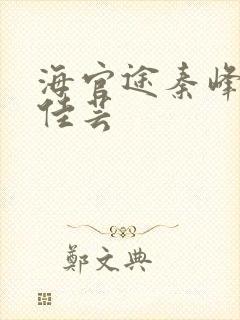 海官途秦峰
佳芸
鄭文典